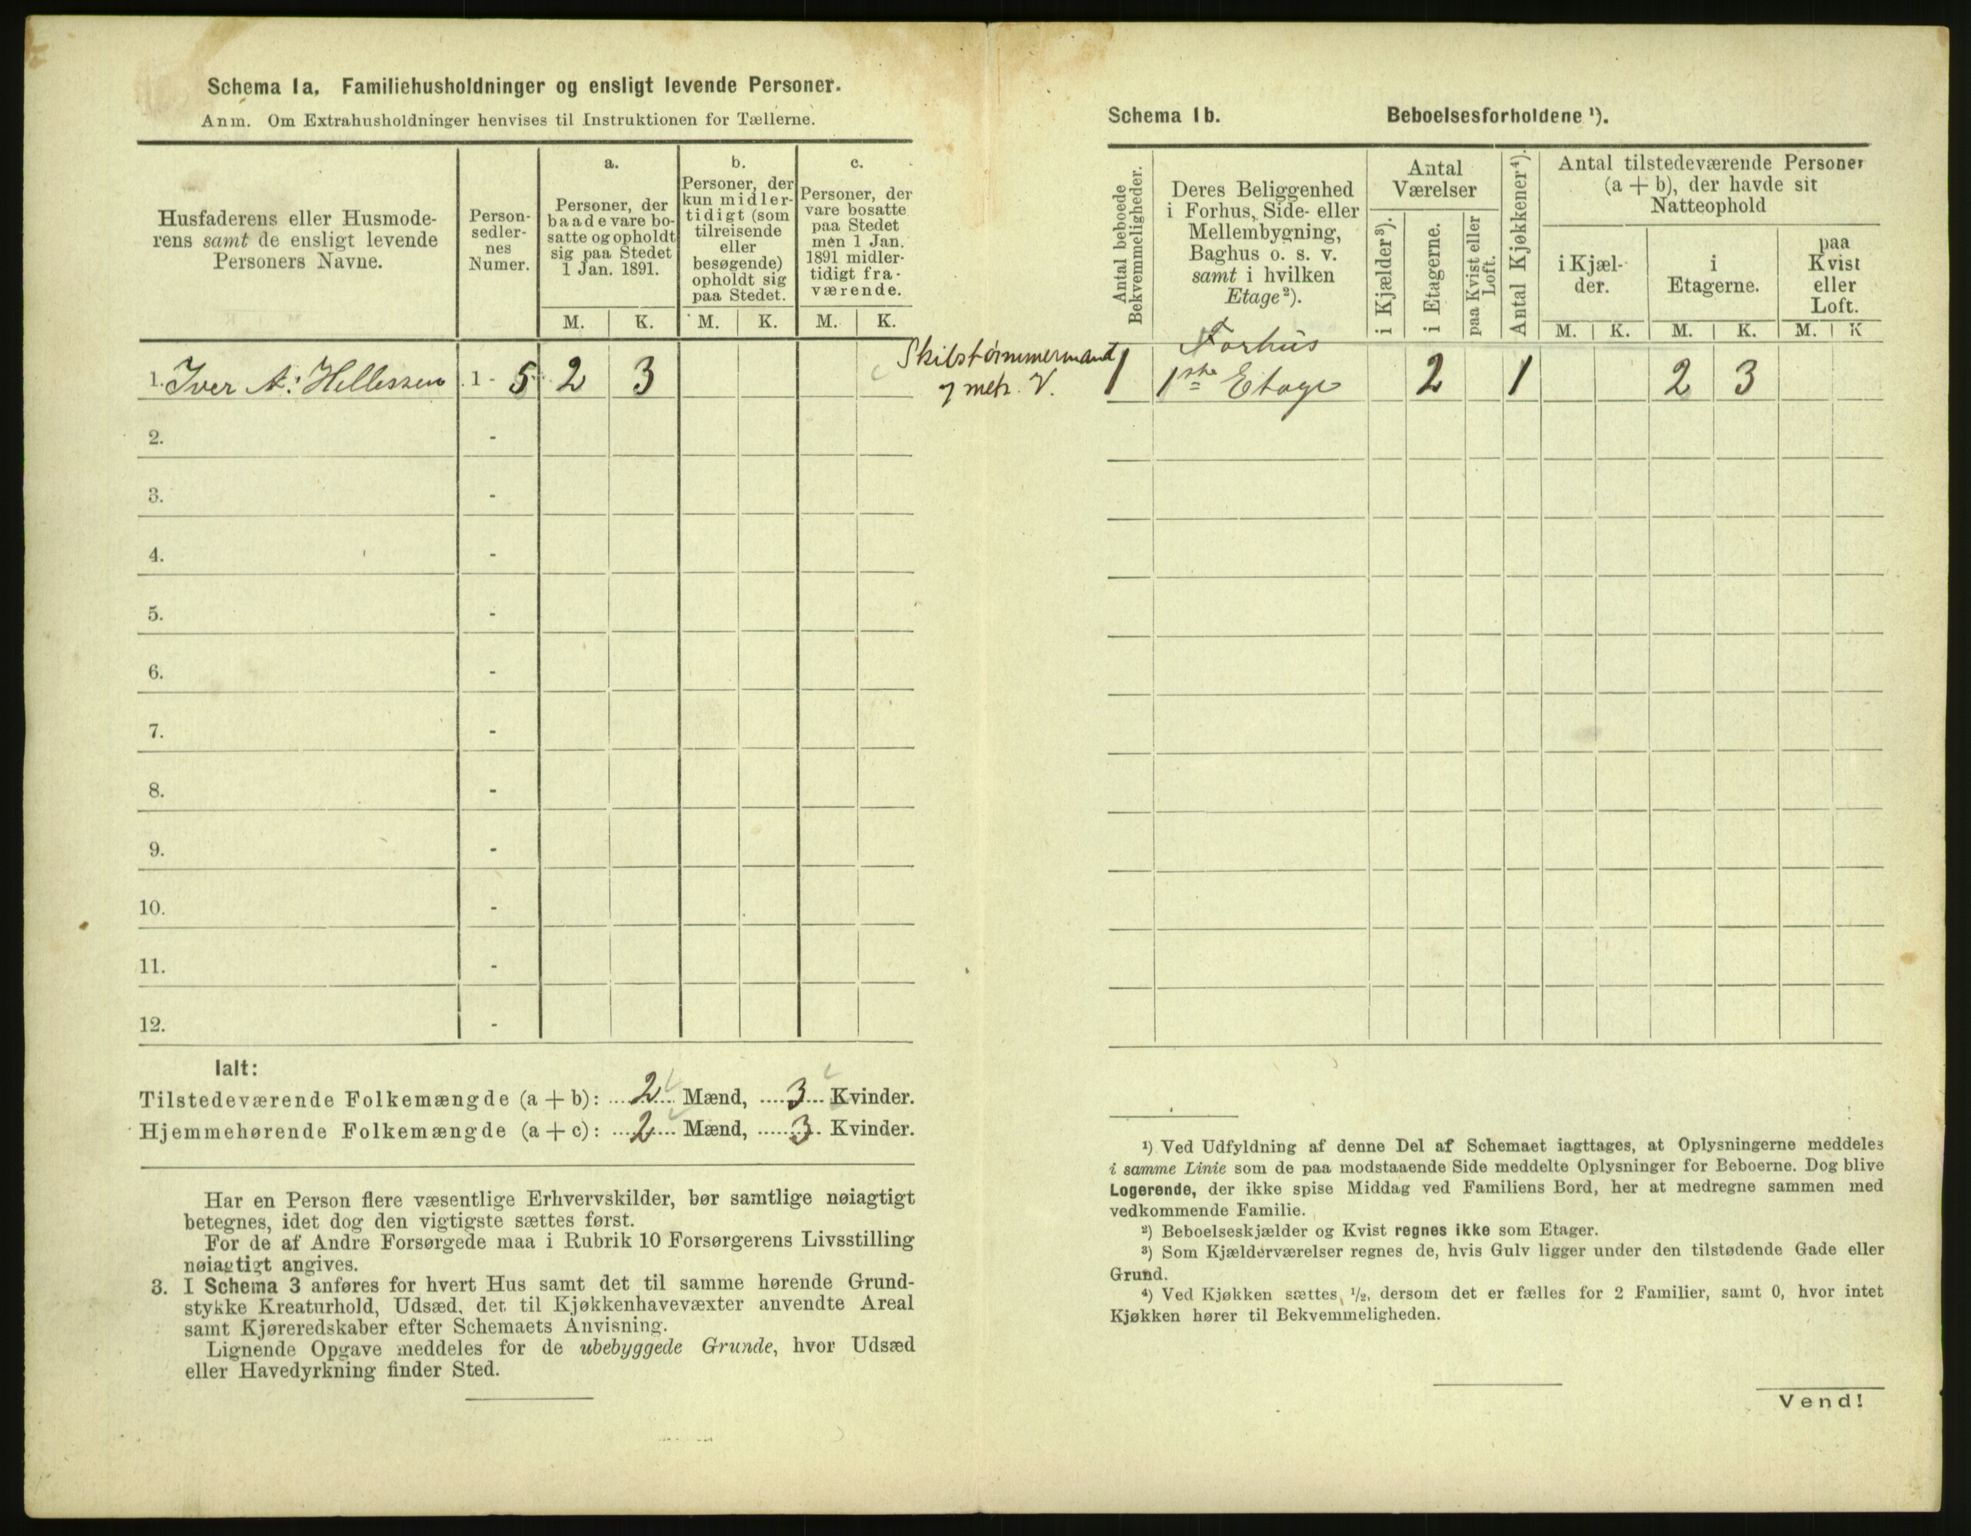 Schema 1a. Familiehusholdninger og ensligt levende Personer.
Anm. Om Extrahusholdninger henvises til Instruktionen for Tællerne.
Husfaderens eller Husmode-
rens samt de ensligt levende
Personers Navne.
Person-
sedler-
nes
Numer.
a.
Personer, der
baade vare bo-
satte og opholdt
sig paa Stedet
1 Jan. 1891.
M. K.
b.
Personer, der
kun midler-
tidigt (som
tilreisende
eller
besøgende)
opholdt sig
paa Stedet.
M. K.
c.
Personer, der
vare bosatte
paa Stedet
men 1 Jan.
1891 midler-
tidigt fra-
værende.
M. K.
1. Iver A: Hellessen 1 - 5 2 3
2. -
3. -
4. -
5. -
6. -
7. -
8. -
9. -
10. -
11. -
12. -
Ialt:
Tilstedeværende Folkemængde (a + b): 2 Mænd, 3 Kvinder.
Hjemmehørende Folkemængde (a + c): 2 Mænd, 3 Kvinder.
Har en Person flere væsentlige Erhvervskilder, bør samtlige nøiagtigt
betegnes, idet dog den vigtigste sættes først.
For de af Andre Forsørgede maa i Rubrik 10 Forsørgerens Livsstilling
nøiagtigt angives.
3. I Schema 3 anføres for hvert Hus samt det til samme hørende Grund-
stykke Kreaturhold, Udsæd, det til Kjøkkenhavevæxter anvendte Areal
samt Kjøreredskaber efter Schemaets Anvisning.
Lignende Opgave meddeles for de ubebyggede Grunde, hvor Udsæd
eller Havedyrkning finder Sted.
Skibstømmermand
7 V.
Schema 1b. Beboelsesforholdene ¹).
Antal beboede
Bekvemmeligheder.
Deres Beliggenhed
i Forhus, Side- eller
Mellembygning,
Baghus o. s. v.
samt i hvilken
Etage²).
Antal
Værelser
i Kjælder³).
i Etagerne.
paa Kvist eller
Loft.
Antal Kjøkkener⁴).
Antal tilstedeværende Personer
(a + b), der havde sit
Natteophold
i Kjæl-
der.
M. K.
i
Etagerne.
M. K.
paa
Kvist
eller
Loft.
M. K
Forhus
1 1ste Etage 2 1 2 3
¹) Ved Udfyldning af denne Del af Schemaet iagttages, at Oplysningerne meddeles
i samme Linie som de paa modstaaende Side meddelte Oplysninger for Beboerne. Dog blive
Logerende, der ikke spise Middag ved Familiens Bord, her at medregne sammen med
vedkommende Familie.
²) Beboelseskjælder og Kvist regnes ikke som Etager.
³) Som Kjælderværelser regnes de, hvis Gulv ligger under den tilstødende Gade eller
Grund.
⁴) Ved Kjøkken sættes ¹/₂, dersom det er fælles for 2 Familier, samt 0, hvor intet
Kjøkken hører til Bekvemmeligheden.
Vend!